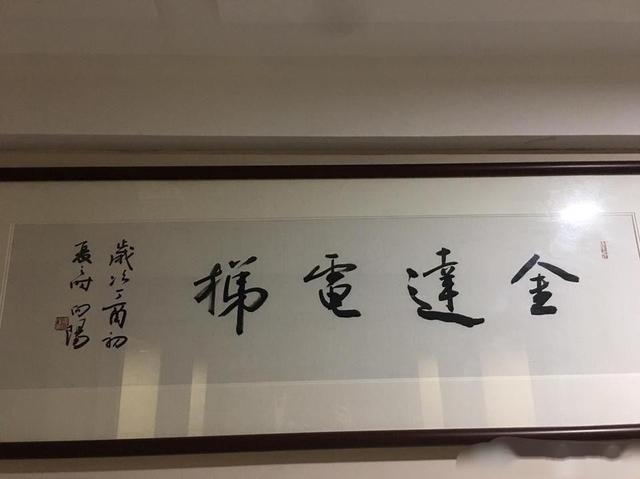 金達電梯
歲次丁酉初
夏 向陽